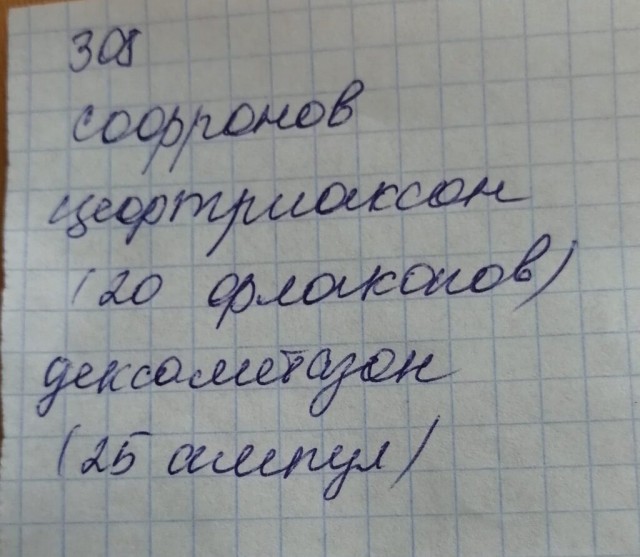 308
софронов
цефтриаксон
(20 флаконов)
дексаметазон
(25 ампул)